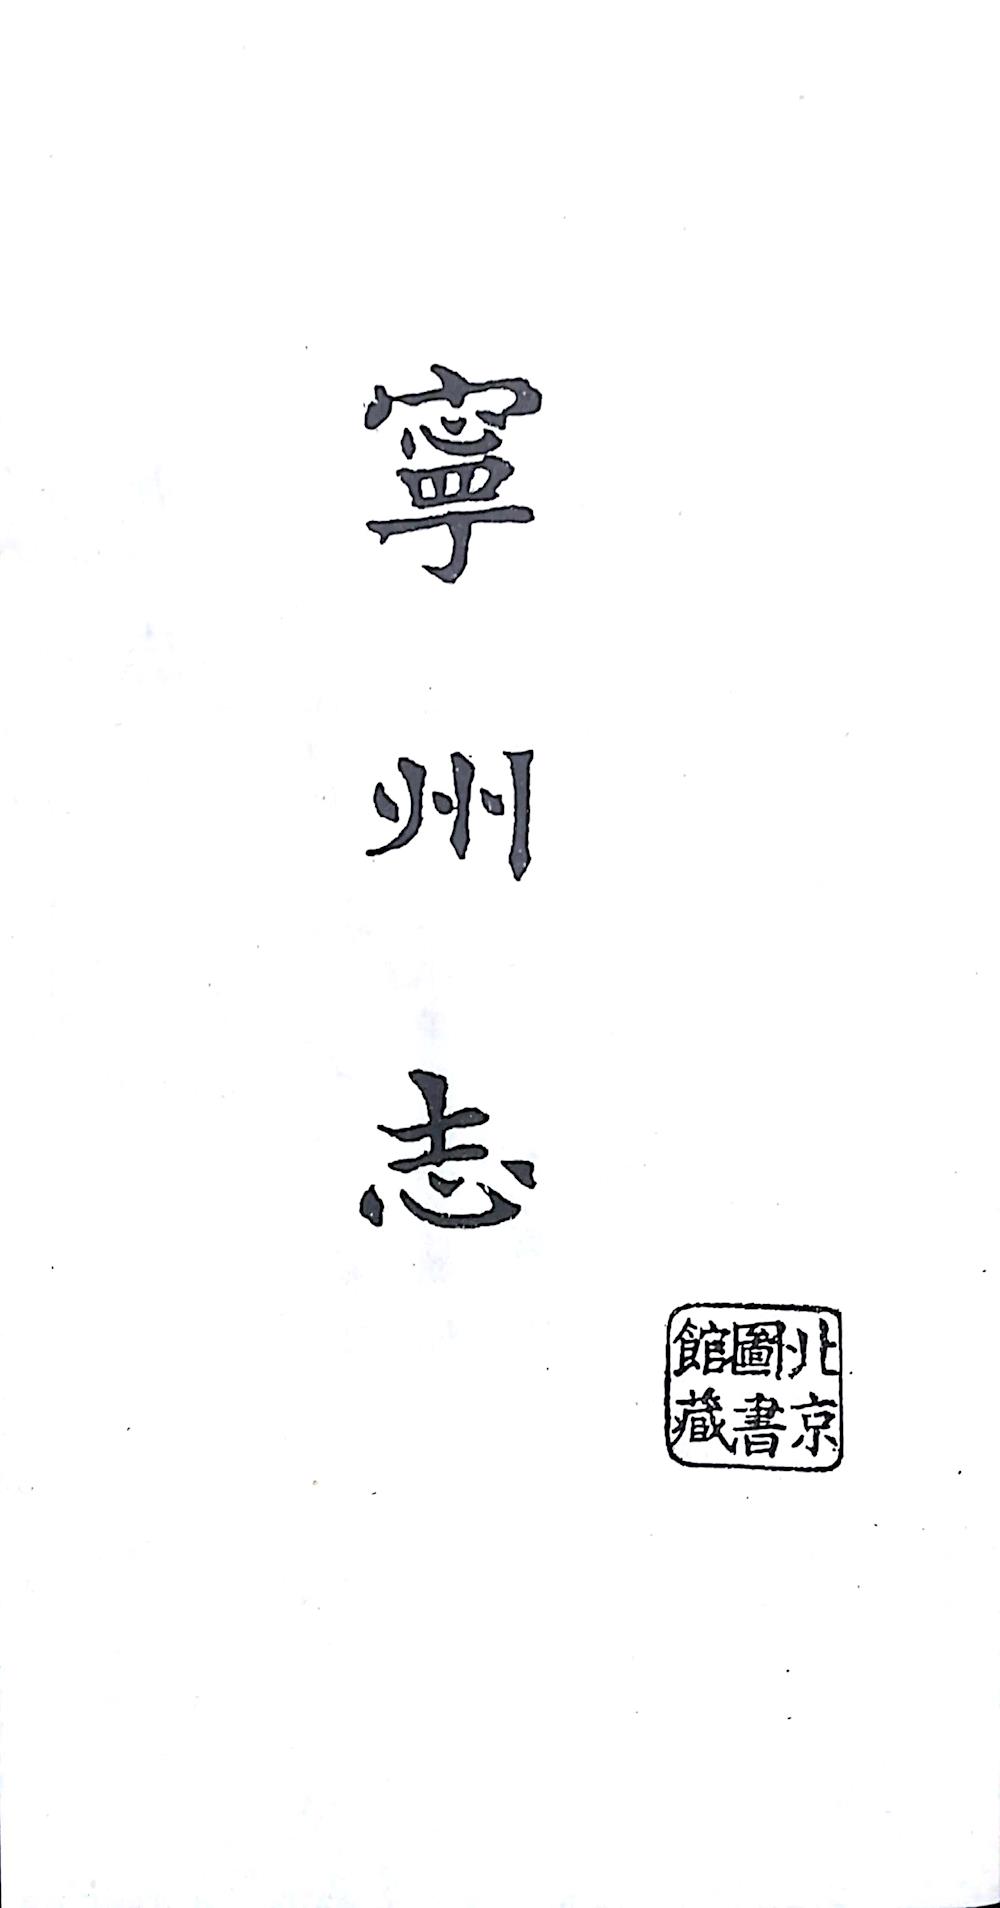 寧州志
北京
圖書
館藏